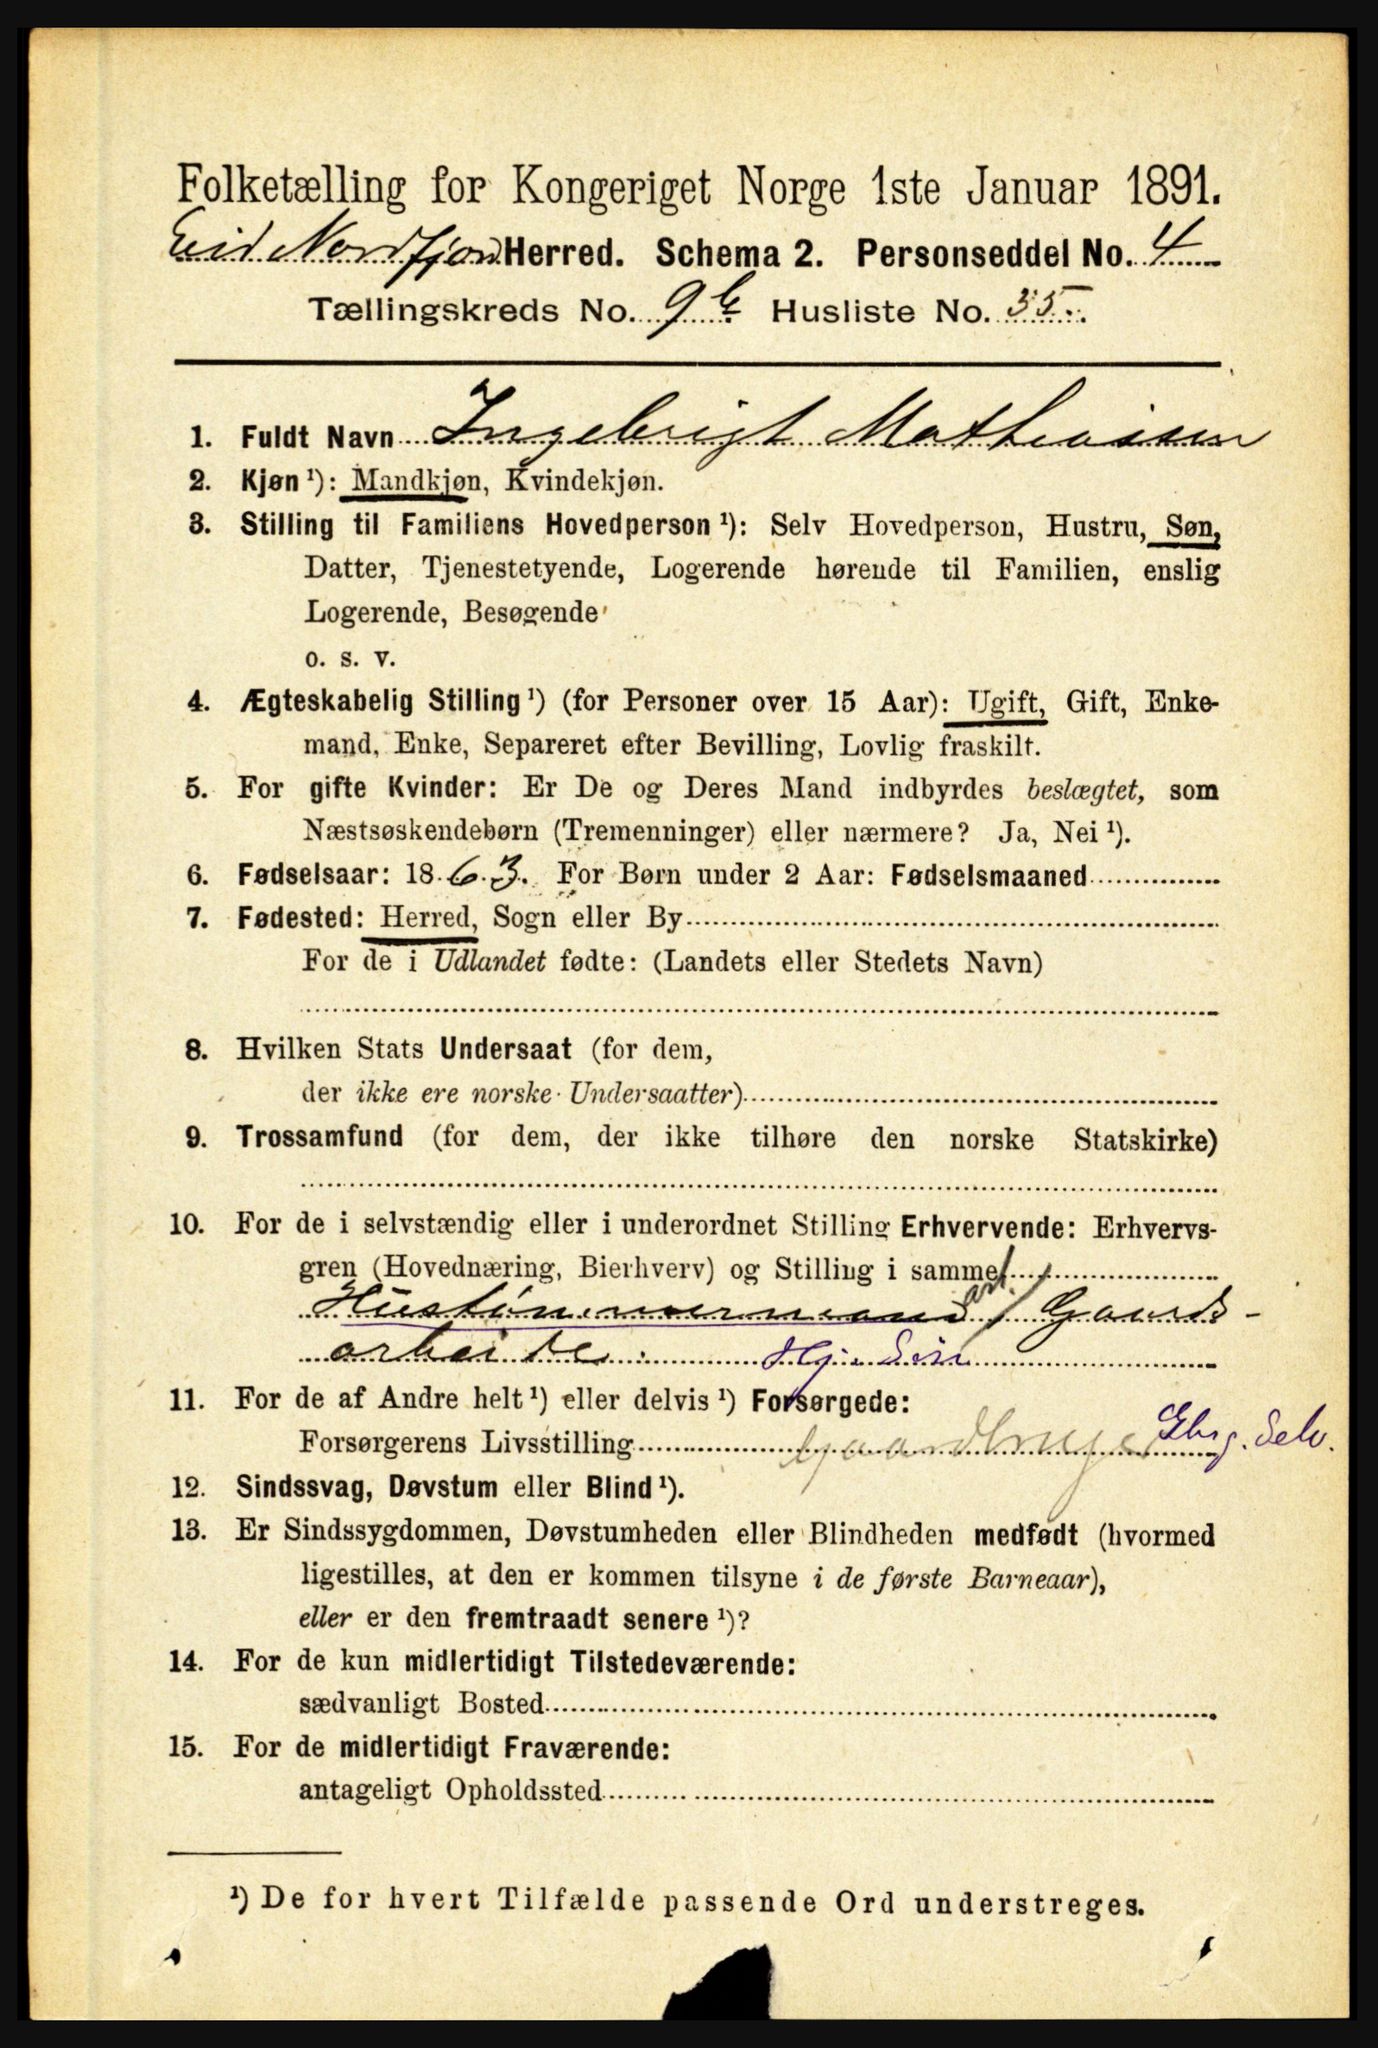 Folketælling for Kongeriget Norge 1ste Januar 1891.
Eid Nordfjord Herred. Schema 2. Personseddel No. 4
Tællingskreds No. 9 b Husliste No. 35.
1. Fuldt Navn Ingebrigt Mathiassen
2. Kjøn ¹): Mandkjøn, Kvindekjøn.
3. Stilling til Familiens Hovedperson ¹): Selv Hovedperson, Hustru, Søn,
Datter, Tjenestetyende, Logerende hørende til Familien, enslig
Logerende, Besøgende
o. s. v.
4. Ægteskabelig Stilling ¹) (for Personer over 15 Aar): Ugift, Gift, Enke-
mand, Enke, Separeret efter Bevilling, Lovlig fraskilt.
5. For gifte Kvinder: Er De og Deres Mand indbyrdes beslægtet, som
Næstsøskendebørn (Tremenninger) eller nærmere? Ja, Nei ¹).
6. Fødselsaar: 1863. For Børn under 2 Aar: Fødselsmaaned
7. Fødested: Herred, Sogn eller By
For de i Udlandet fødte: (Landets eller Stedets Navn)
8. Hvilken Stats Undersaat (for dem,
der ikke ere norske Undersaatter)
9. Trossamfund (for dem, der ikke tilhøre den norske Statskirke)
10. For de i selvstændig eller i underordnet Stilling Erhvervende: Erhvervs-
gren (Hovednæring, Bierhverv) og Stilling i samme
Hustømmermand arb. / Gaards-
arbeide. Hj. Søn
11. For de af Andre helt ¹) eller delvis ¹) Forsørgede:
Forsørgerens Livsstilling Gaardbruger Gbrg. Selv.
12. Sindssvag, Døvstum eller Blind ¹).
13. Er Sindssygdommen, Døvstumheden eller Blindheden medfødt (hvormed
ligestilles, at den er kommen tilsyne i de første Barneaar),
eller er den fremtraadt senere ¹)?
14. For de kun midlertidigt Tilstedeværende:
sædvanligt Bosted
15. For de midlertidigt Fraværende:
antageligt Opholdssted
¹) De for hvert Tilfælde passende Ord understreges.